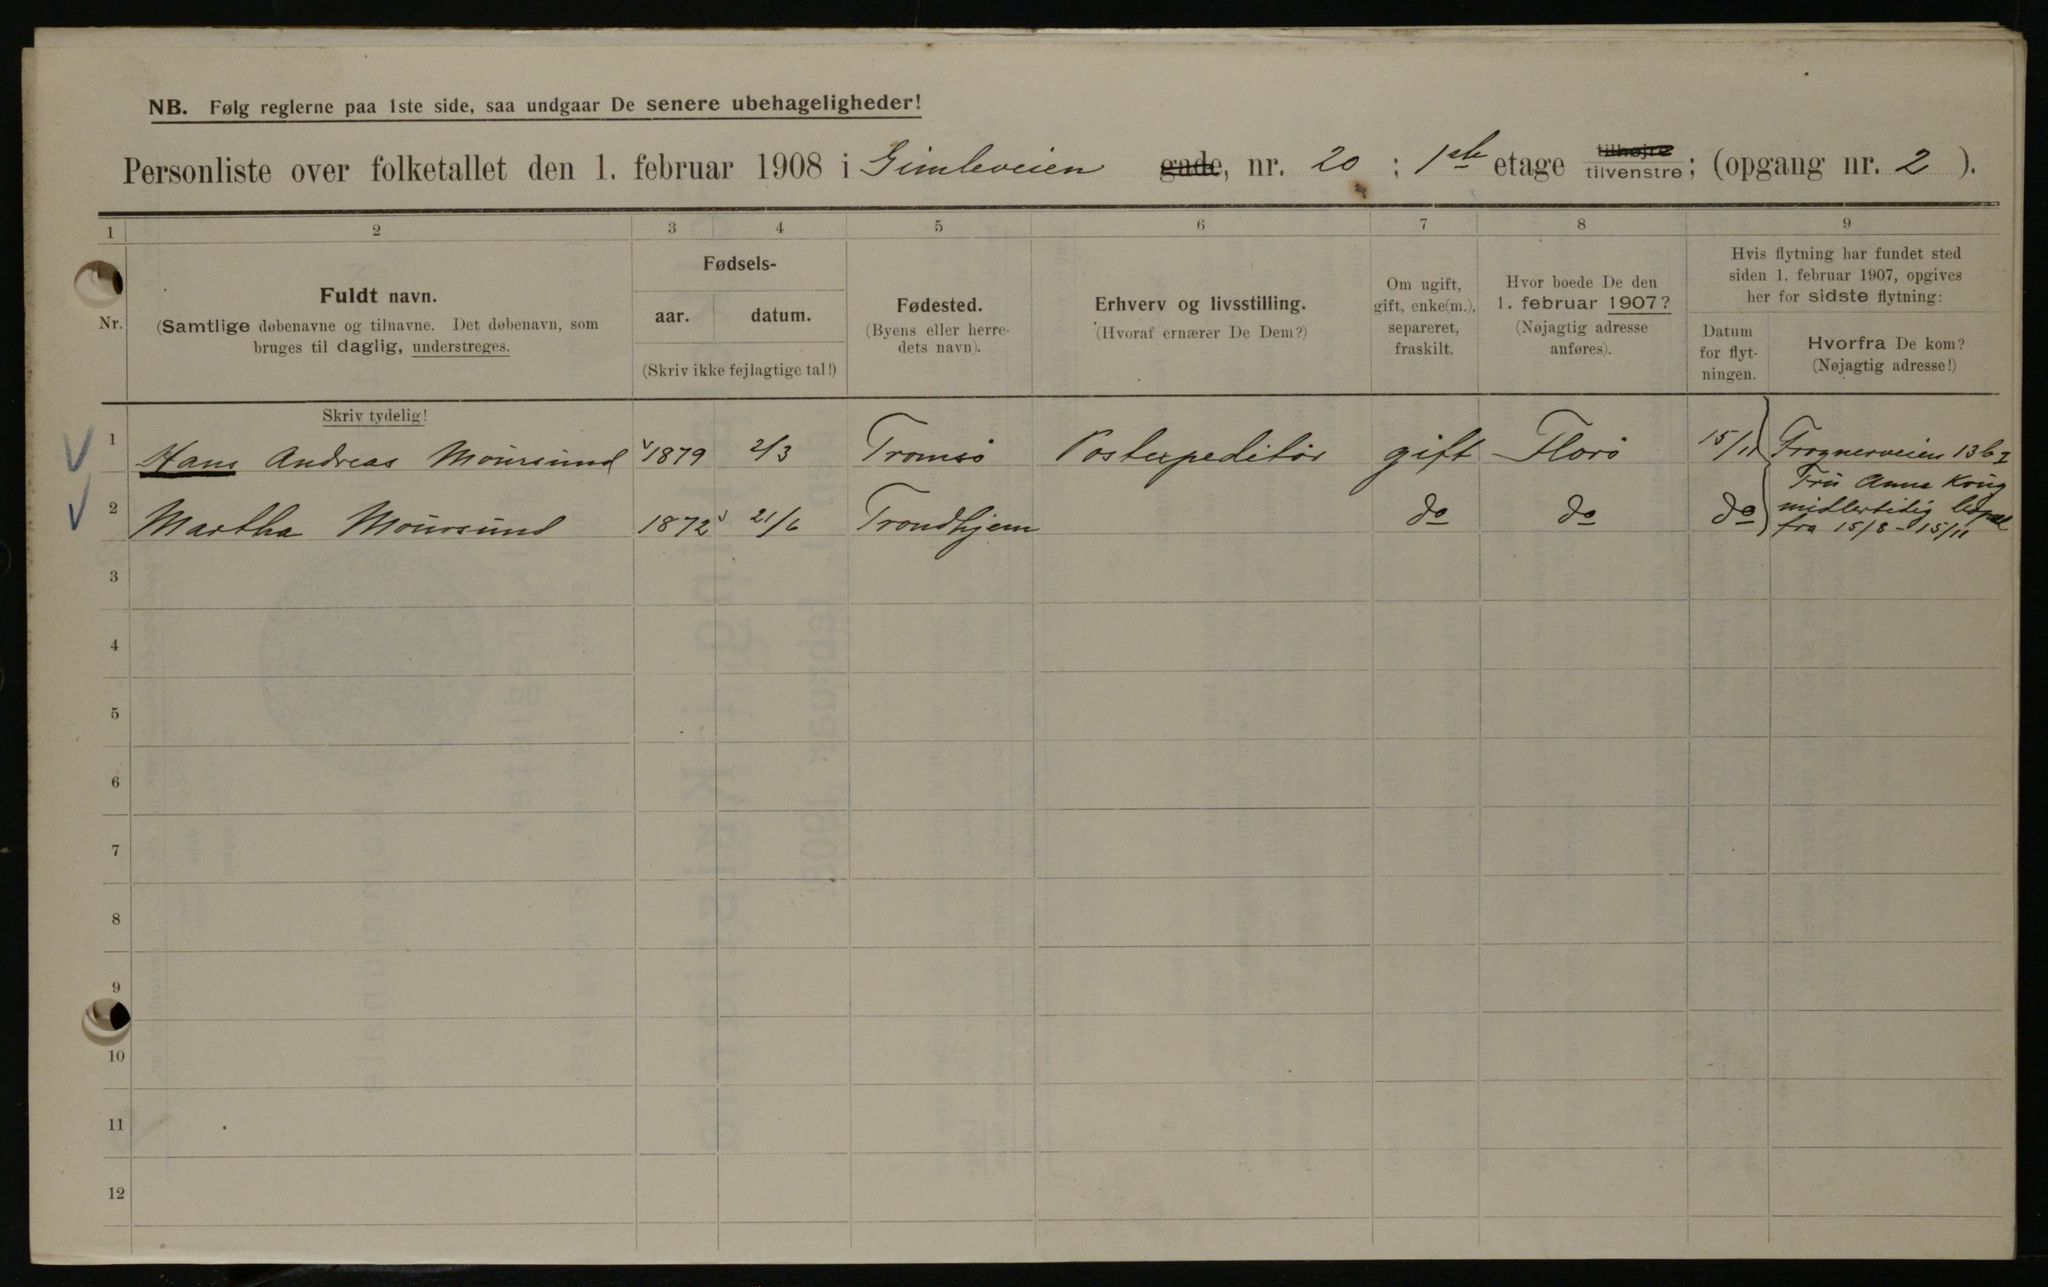 NB. Følg reglerne paa 1ste side, saa undgaar De senere ubehageligheder!
Personliste over folketallet den 1. februar 1908 i Gimleveien gade, nr. 20 ; 1ste etage tilhøjre tilvenstre; (opgang nr. 2 ).
1 2 3 4 5 6 7 8 9
Nr.
Fuldt navn.
(Samtlige døbenavne og tilnavne. Det døbenavn, som
bruges til daglig, understreges.
Skriv tydelig!
Fødsels-
aar. datum.
(Skriv ikke fejlagtige tal!)
Fødested.
(Byens eller herre-
dets navn).
Erhverv og livsstilling.
(Hvoraf ernærer De Dem?)
Om ugift,
gift, enke(m.),
separeret,
fraskilt.
Hvor boede De den
1. februar 1907?
(Nøjagtig adresse
anføres).
Hvis flytning har fundet sted
siden 1. februar 1907, opgives
her for sidste flytning:
Datum
for flyt-
ningen.
Hvorfra De kom?
(Nøjagtig adresse!)
1 Hans Andreas Moursund 1879 2/3 Tromsø Postexpeditør gift Florø 15/11 Frognerveien 13b I
Frü Anna Krüg
2 Martha Moursund 1872 21/6 Trondhjem do do do midlertidig
fra 15/8 - 15/11
3
4
5
6
7
8
9
10
11
12